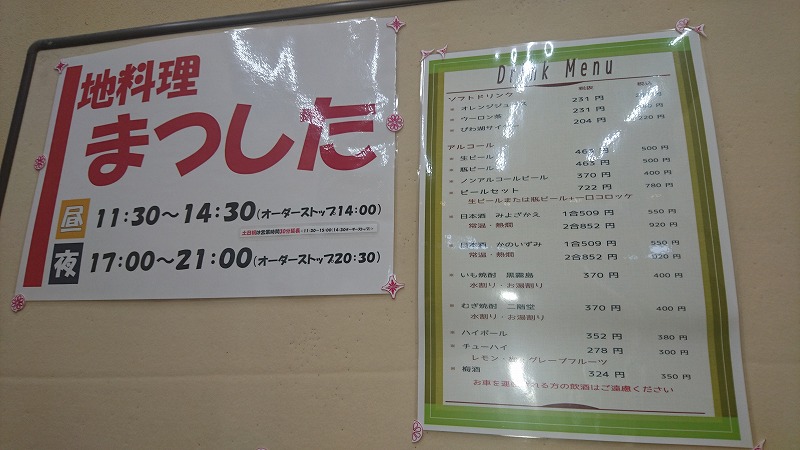 地料理
まつした
昼 11:30～14:30(オーダーストップ14:00)
土日祝は営業時間30分延長
夜 17:00～21:00(オーダーストップ20:30)
Drink Menu
税抜 税込
ソフトドリンク
オレンジジュース 231 円
ウーロン茶 231 円
びわ湖サイ 204 円 220 円
アルコール
生ビール 463 円 500 円
瓶ビール 463 円 500 円
ノンアルコールビール 370 円 400 円
ビールセット 722 円 780 円
生ビールまたは瓶ビール+一口コロッケ
日本酒 みよざかえ 1合509 円 550 円
常温・熱燗 2合852 円 920 円
日本酒 かのいずみ 1合509 円 550 円
常温・熱燗 2合852 円 920 円
いも焼酎 黒霧島 370 円 400 円
水割り・お湯割り
むぎ焼酎 二階堂 370 円 400 円
水割り・お湯割り
ハイボール 352 円 380 円
チューハイ 278 円 300 円
レモン・ グレープフルーツ
梅酒 324 円 350 円
お車を運 れる方の飲酒はご遠慮ください